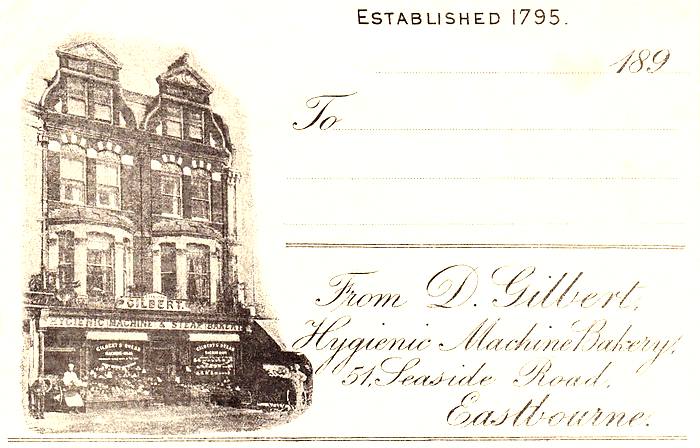 ESTABLISHED 1795.
189
To
From D. Gilbert,
Hygienic Machine Bakery,
51, Seaside Road,
Eastbourne.
GILBERT
HYGIENIC MACHINE & STEAM BAKERY
GILBERT'S BREAD
MACHINE MADE
GILBERT'S BREAD